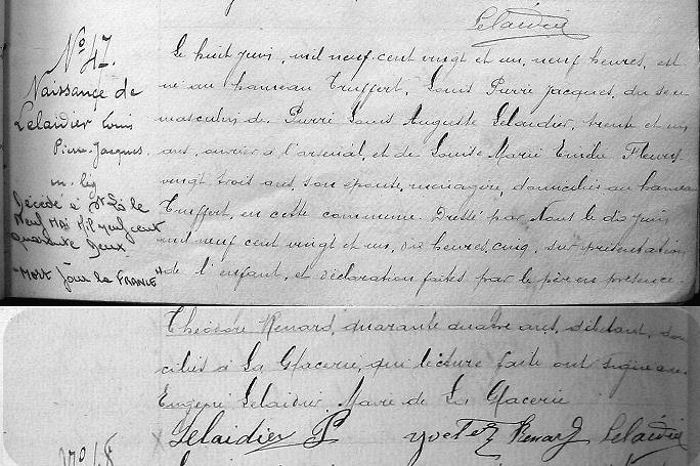 Lelaidier
No 47.
Naissance de
Lelaidier Louis
Pierre-Jacques
m. lég
Décédé à St Lô le
Neuf Mai Mil neuf cent
quarante deux.
"Mort pour la France"
Le huit juin, mil neuf cent vingt et un, neuf heures, est
né au hameau Truffert, Louis Pierre Jacques, du sexe
masculin de Pierre Louis Auguste Lelaidier, trente et un
ans, ouvrier à l'arsenal, et de Louise Marie Fleury
vingt trois ans, son épouse, ménagère, domiciliés au hameau
Truffert, en cette commune. Dressé par Nous le dix juin
mil neuf cent vingt et un, dix heures, cinq, sur présentation
de l'enfant, et déclaration faites par le père en présence
Théodore Renard, quarante quatre ans, débitant, domi
ciliés à La Glacerie, qui lecture faite ont signé avec
Eugène Lelaidier Maire de La Glacerie
No 48
Lelaidier P Renard Lelaidier